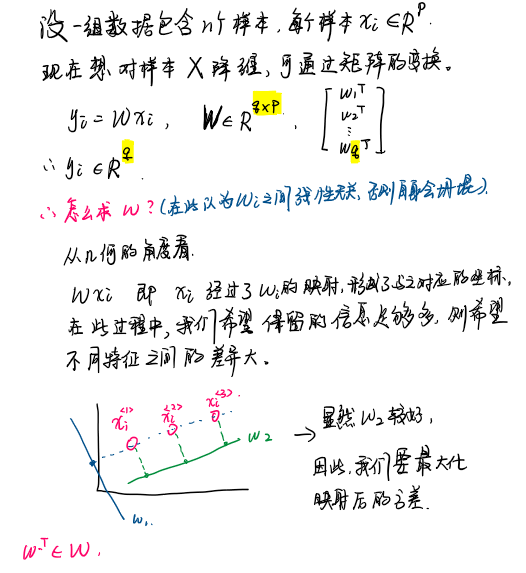 设一组数据包含n个样本, 每个样本 xi ∈ R^P.
现在想对样本 X 降维, 可通过矩阵的变换。
yi = Wxi, W ∈ R^{q×p}, [w1^T w2^T ⋮ wq^T]
∴ yi ∈ R^q.
∴ 怎么求 W? (在此认为Wi之间线性无关, 否则会坍塌).
从几何的角度看.
Wxi 即 xi 经过了 Wi的映射, 形成了与之对应的坐标,
在此过程中, 我们希望保留的信息足够多, 则希望
不同特征之间的差异大。
xi^<1> xi^<2> xi^<3>
w2
w1.
→ 显然 W2 较好,
因此, 我们要最大化
映射后的方差.
w^T ∈ W,